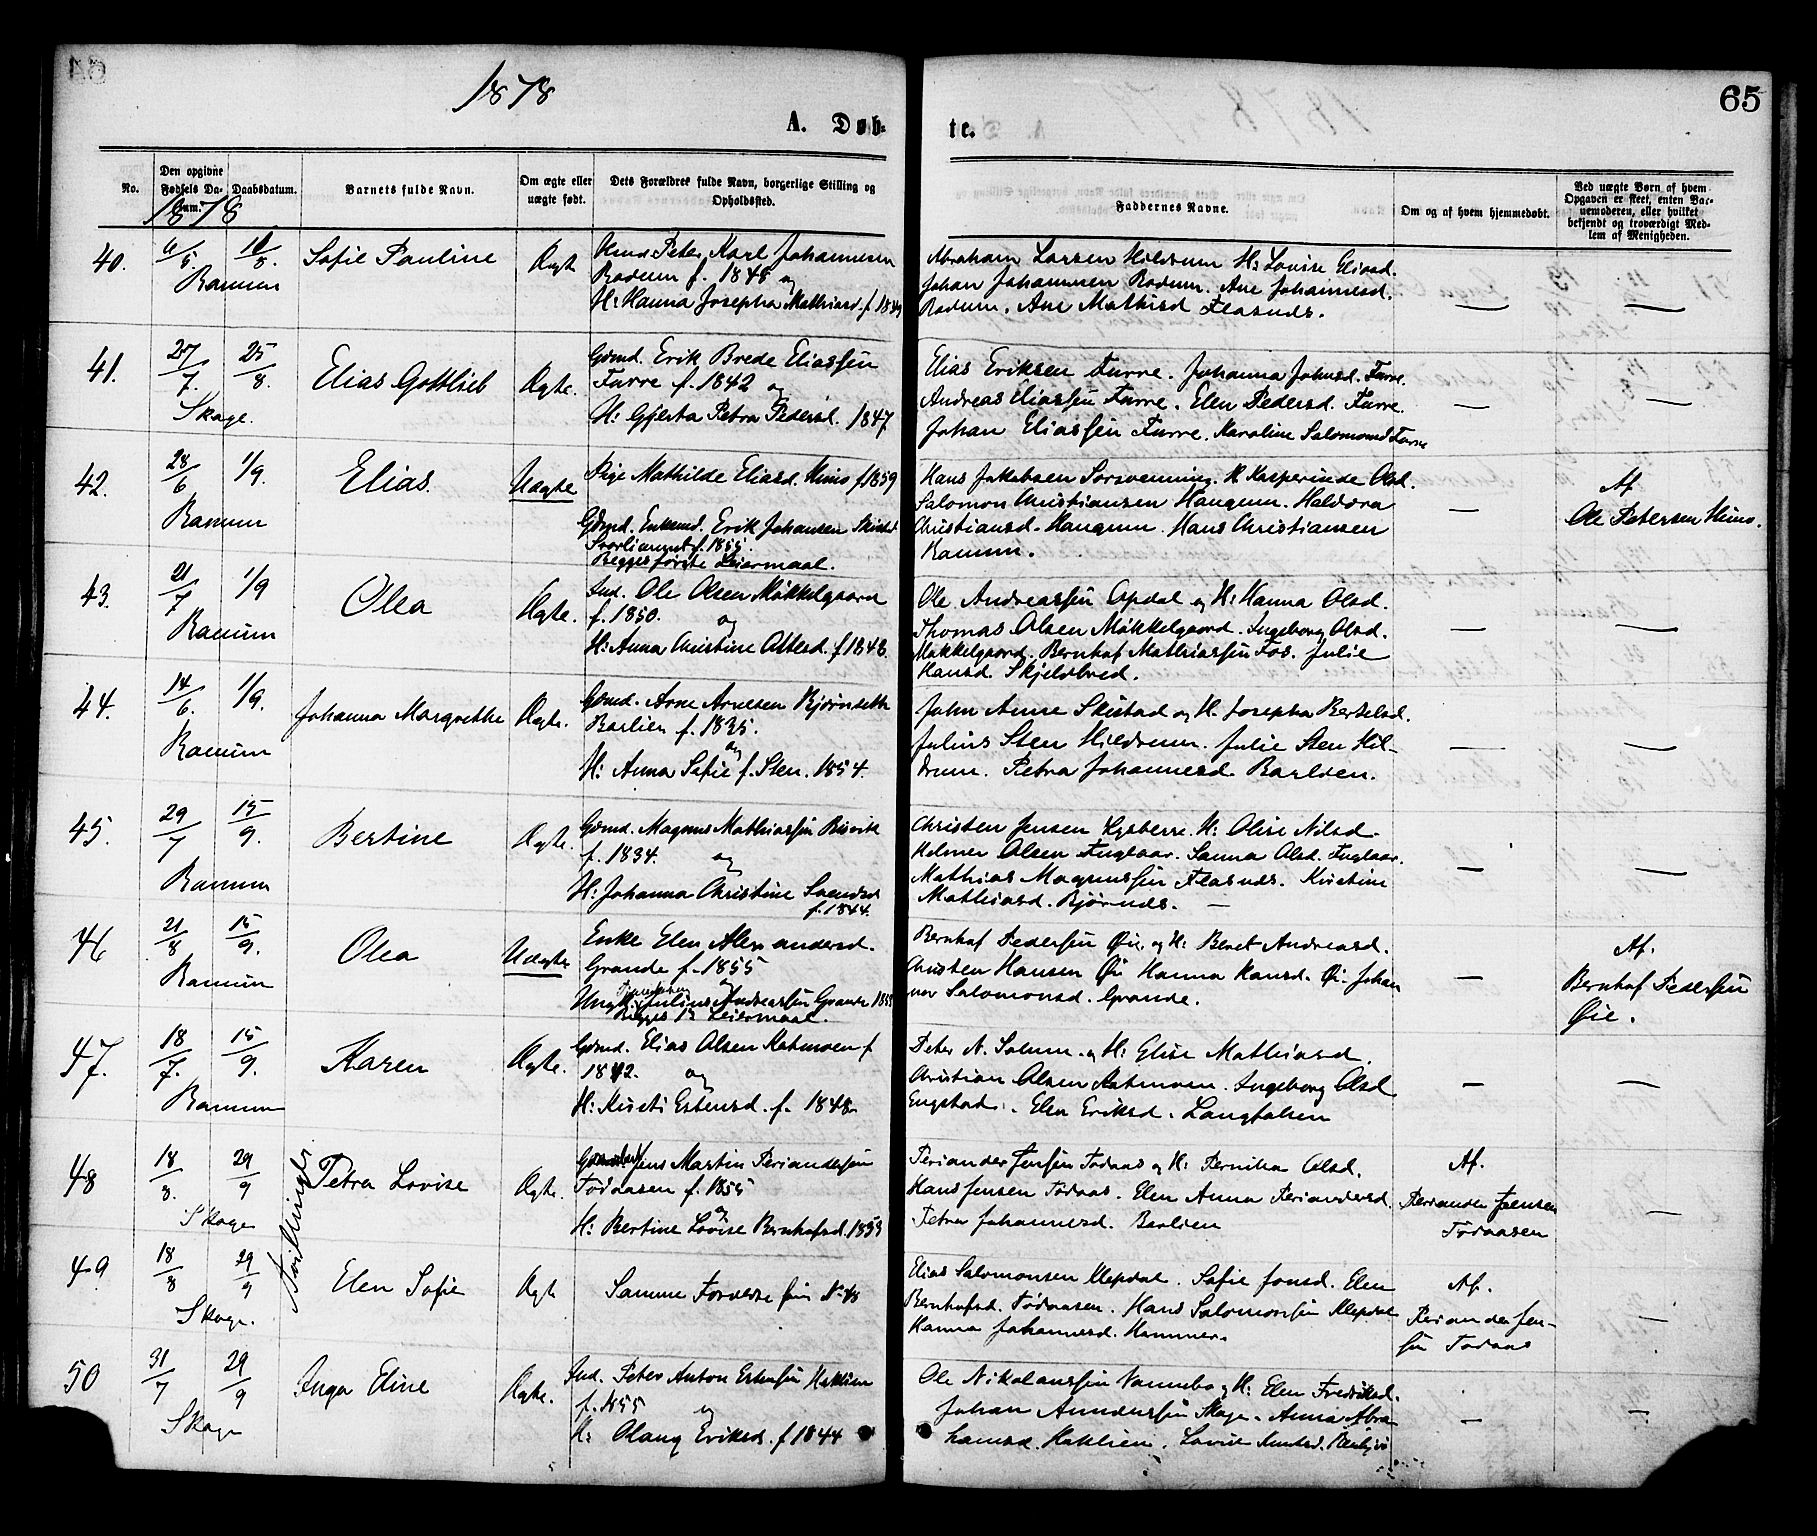 1878
65
A. Døb-
te.
No.
Den opgivne Fødsels Datum.
1878
Daabsdatum.
Barnets fulde Navn.
Om ægte eller uægte født.
Dets Forældres fulde Navn, borgerlige Stilling og Opholdssted.
Faddernes Navne.
Om og af hvem hjemmedøbt.
Ved uægte Børn af hvem Opgaven er skeet, enten Barnemoderen, eller hvilket bekjendt og troværdigt Medlem af Menigheden.
40. 18/8. Ranum
Sofie Pauline
Ægte
Peter Karl Johannesen
Rodum f. 1845 og
H: Hanna Josepha Mathiasd. f.
Abraham Larsen Hildrum H: Lovise Eliasd.
Johan Johannesen Rodum. Ane Johannesd.
Rodum. Ane Mathisd Flasnds.
— —
41. 27/7. 25/8. Skage.
Elias Gottlieb
Ægte.
Gdmd. Erik Brede Eliassen
Furre f. 1842 og
H: Gjerta Petra Pedersd. 1847
Elias Eriksen Furre. Johanna Johnsd. Furre.
Andreas Eliassen Furre. Elen Pedersd. Furre.
Johan Eliassen Furre. Karoline Salomonsd Furre
— —
42. 28/6 1/9. Ranum
Elias.
Uægte
Pige Mathilde Eliasd. Himo f 1859
Gdmd. Enkemd. Erik Johansen
f. 1855.
Begges første Leiermaal.
Hans Jakobsen H. Kasperinde Olsd.
Salomon Christiansen Haugum. Haldora
Christiansd. Haugum. Hans Christiansen
Ranum.
—
Af.
Ole Petersen Himo.
43. 21/7 1/9 Ranum
Olea
Ægte.
Ind. Ole Olsen Møkkelgaard
f. 1850. og
H: Anna Christine Ottesd. f 1848.
Ole Andreassen Apdal og H: Hanna Olsd.
Thomas Olsen Møkkelgaard. Ingeborg Olsd.
Møkkelgaard. Bernhof Mathiassen Fos. Julie
Hansd. Skjelbred.
— —
44. 14/6. 1/9. Ranum
Johanna Margrethe
Ægte.
Gdmd. Arne Arnesen Bjørnseth
Barlien f. 1835.
og
H: Anna Sofie f. Sten. 1854.
John Arnse Skistad og H. Josepha Bertelsd.
Julius Sten Hildrum. Julie Sten Hil-
drum. Petra Johannesd. Barlien.
— —
45. 29/7 15/9. Ranum
Bertine
Ægte.
Gdmd. Magnus Mathiassen Risvik
f. 1834. og
H: Johanna Christine Svendsd
f. 1844.
Christen Jensen H: Olise Nilsd.
Helmer Olsen Fuglaar. Sanna Olsd. Fuglaar.
Mathias Magnussen Flasnds. Kristine
Mathiasd. Bjørnds. —
— —
46 21/8 15/9. Ranum
Olea
Uægte
Enke Elen Alexandersd.
Grande f. 1855
Julius Andreassen Grande
Begges 1ste Leiermaal.
Bernhof Pedersen Øie. og H: Beret Andreasd.
Christen Hansen Øie Hanna Hansd. Øie. Johan
Salomonsd. Grande.
—
Af.
Bernhof Pedersen
Øie.
47. 18/7. 15/9. Ranum
Karen
Ægte.
Gdmd. Elias Olsen Katmoen f
1842. og
H: Kirsti Estensd. f. 1848
Peter N. Solum og H: Elise Mathiasd.
Christian Olsen Katmoen. Ingeborg Olsd
Engstad. Elen Eriksd. Langhalsen
— —
48 18/8. 29/9 Skage
Tvillinger
Petra Lovise
Ægte.
Jens Martin Periandersen
Tødaasen f. 1855
og
H: Bertine Lovise Bernhofsd. 1853
Periander Jensen Tødaas og H: Pernilla Olsd.
Hans Jensen Tødaas. Elen Anna Periandersd.
Petra Johannesd. Barlien
Af.
Periander Jensen
Tødaasen
—
49 18/8 29/9 Skage.
Elen Sofie
Ægte
Samme Forældre som No 48
Elias Salomonsen Klepdal. Sofie Jonsd. Elen
Bernhofsd. Tødaasen. Hans Salomonsen Klepdal
Hanna Johannesd. Hammer.
Af.
Periander Jen-
sen Tødaas
—
50 31/7 29/9 Skage
Inga Eline
Ægte.
Ind. Peter Anton Estensen Haklien
f. 1855 og
H: Olaug Eriksd. f 1844
Ole Nikolaussen Vannebo og H: Elen Fredriksd.
Johan Amundsen Skage. Anna Abra-
hamsd. Haklien. Lovise
— —